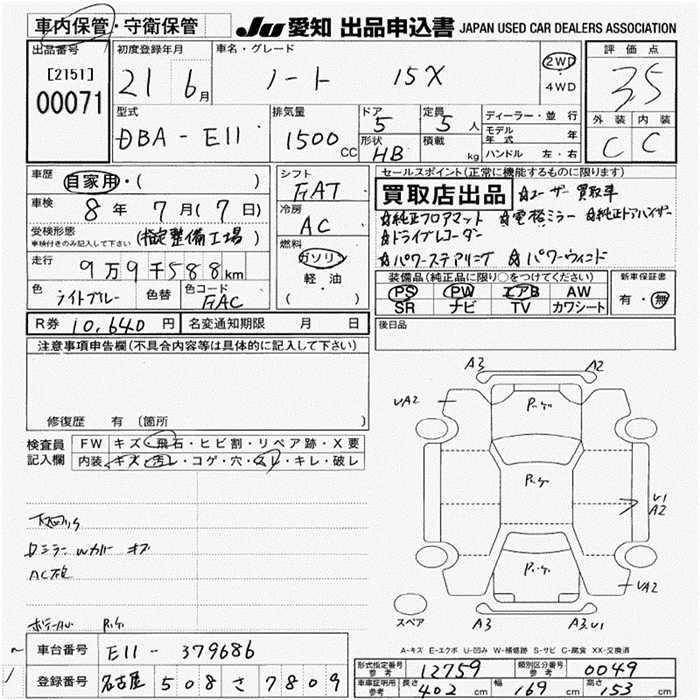 車内保管・守衛保管
JU 愛知 出品申込書 JAPAN USED CAR DEALERS ASSOCIATION
出品番号 [2151] 00071
初度登録年月 21 6月
車名・グレード ノート 15X
2WD・4WD
評価点 3.5
外装 C 内装 C
型式 DBA-E11
排気量 1500CC
ドア 5 形状 HB
定員 5人 積載 kg
ディーラー・並行
モデル年式 年
ハンドル 左・右
車歴 自家用・( )
車検 8年 7月(7日)
受検形態 車検付きのみ記入して下さい (指定整備工場)
走行 9万9千588km
色 ライトブルー 色替 色コード FAC
シフト FAT
冷房 AC
燃料 ガソリン・軽油・( )
セールスポイント(正常に機能するものに限ります)
買取店出品 ☆ユーザー買取車
☆純正フロアマット ☆電格ミラー ☆純正ドアバイザー
☆ドライブレコーダー
☆パワーステアリング ☆パワーウィンド
装備品(純正品に限り○をつけてください)
PS PW エアB AW
SR ナビ TV カワシート
新車保証書 有・無
R券 10,640円 名変通知期限 月 日
後日品
注意事項申告欄(不具合内容等は具体的に記入して下さい)
修復歴 有 (箇所 )
検査員記入欄
FW キズ・飛石・ヒビ割・リペア跡・X要
内装 キズ・汚レ・コゲ・穴・スレ・キレ・破レ
下回りサビ
ミラーWカバー キズ
AC
ボデー P.ケ
A3 A2
UA2 P.ケ
P.ケ
U1 A2
P.ケ UA2
A3 A3.U1
スペア
A-キズ E-エクボ U-凹み W-補修跡 S-サビ C-腐食 XX-交換済
車台番号 E11-379686
登録番号 名古屋 508 さ 7809
形式指定番号 参考 12759 類別区分番号 参考 0049
車庫証明用 参考 長さ 402cm 幅 169cm 高さ 153cm